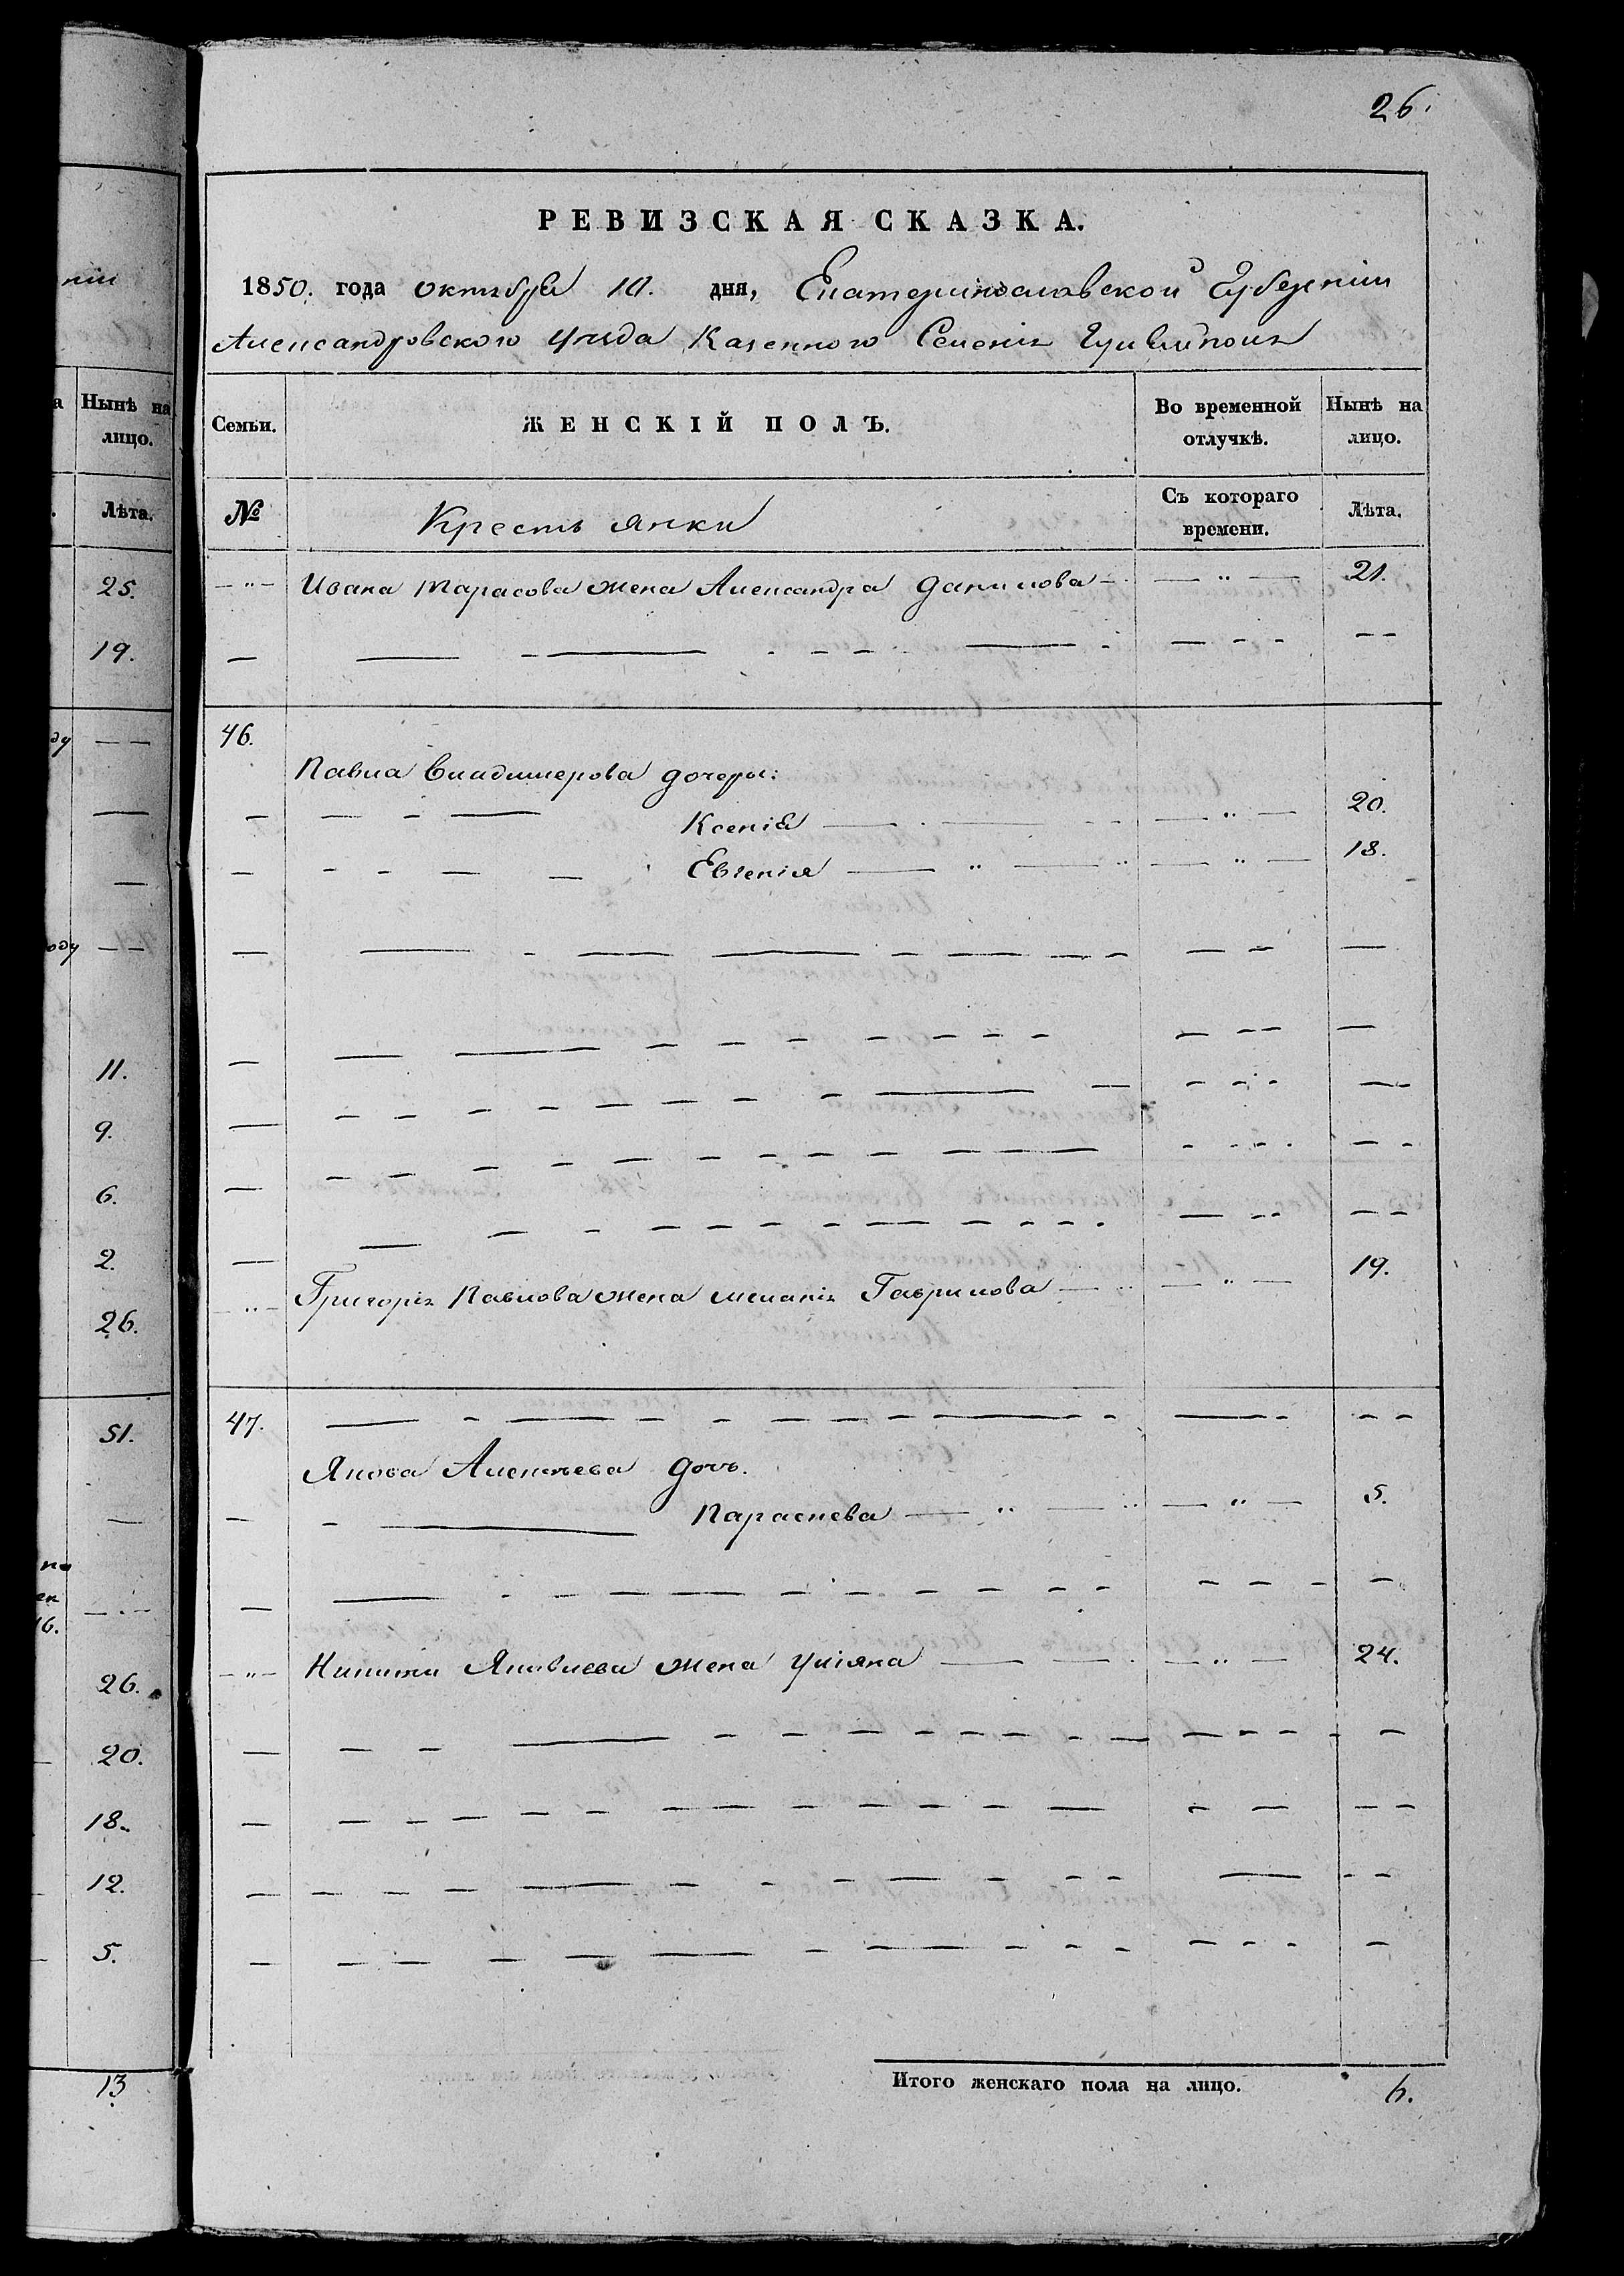 26.
РЕВИЗСКАЯ СКАЗКА.
1850. года октября 10. дня, Екатеринославской Губерніи
Александровского уезда Казенного Селенія
нiи
Нынѣ на лицо.
Лѣта.
25.
19.
ду — —
оду — —
11.
9.
6.
2.
26.
51.
16.
26.
20.
18.
12.
5.
13
Семьи. ЖЕНСКІЙ ПОЛЪ. Во временной отлучкѣ. Нынѣ на лицо.
№ Крестьянки Съ котораго времени. Лѣта.
— " — Ивана Тарасова жена Александра Данилова — — " — 21.
46.
Павла Владимерова дочеры:
Ксенія — — " — 20.
Евгенія — " — " — " — 18.
— " — Григорія Павлова жена Меланія Гаврилова — — " — 19.
47.
Якова Алексѣева дочь.
Параскева — " — " — " — 5.
— " — Никиты Яковлева жена Уліяна — — — " — 24.
Итого женскаго пола на лицо. 6.